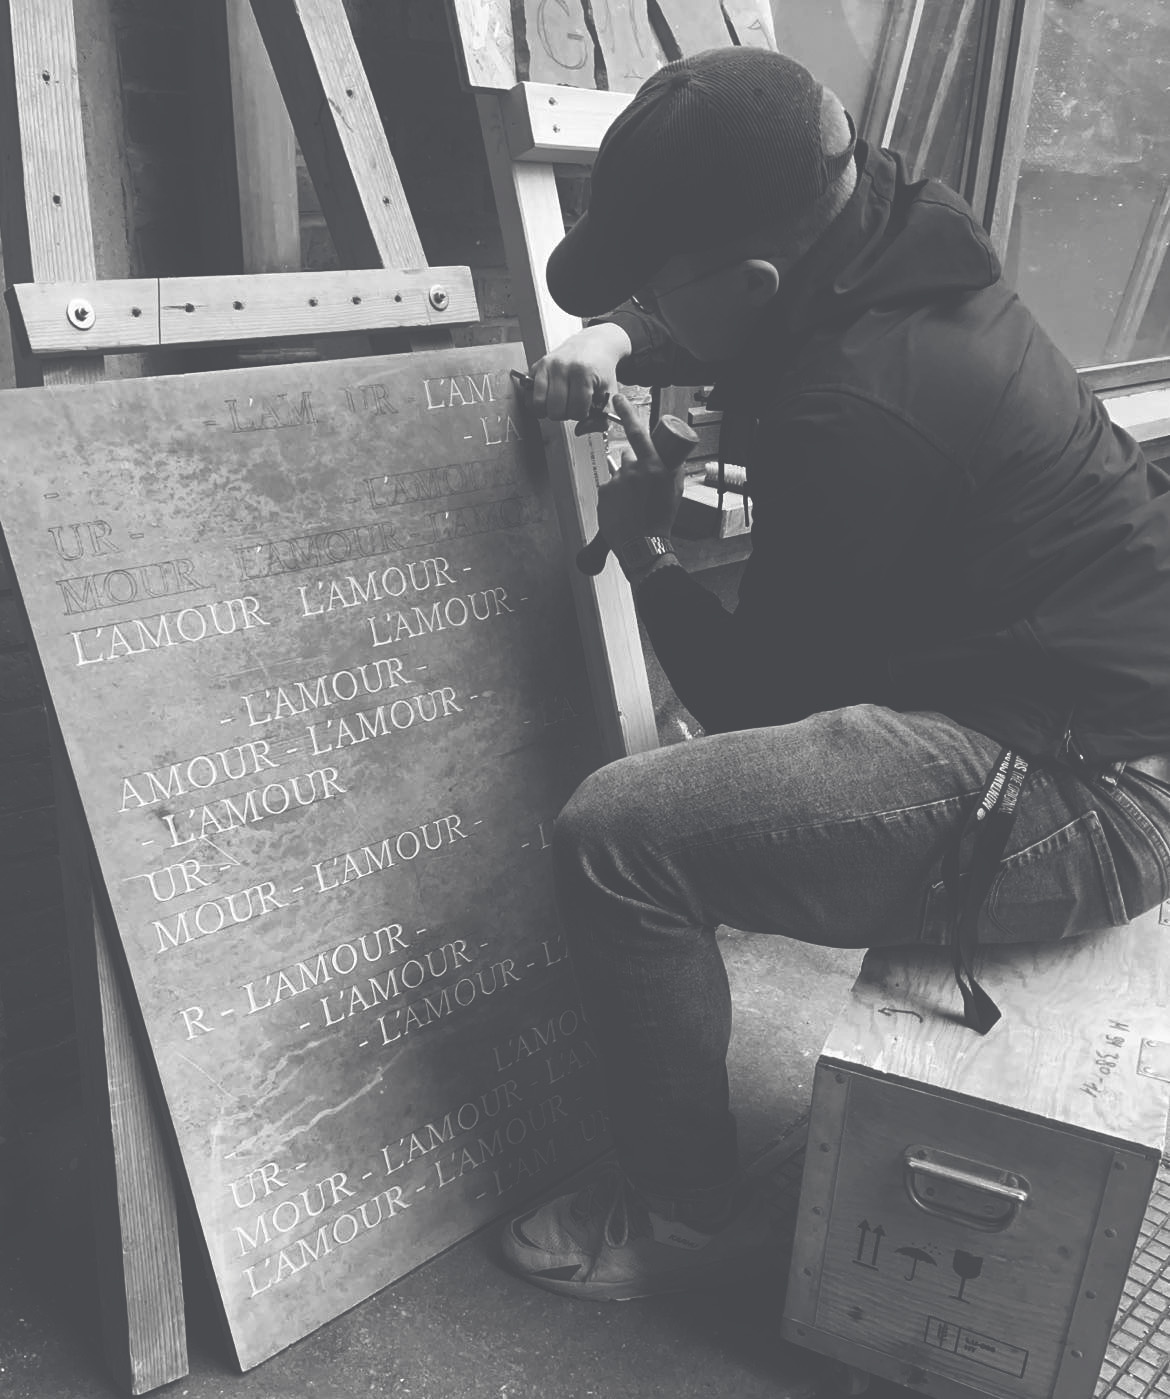 - L'AM UR - L'AM
- L'A
- - L'AMOUR
UR -
MOUR L'AMOUR L'AMO
L'AMOUR L'AMOUR -
L'AMOUR -
- L'AMOUR -
AMOUR - L'AMOUR -
- L'AMOUR
UR -
MOUR - L'AMOUR - - L
R - L'AMOUR -
- L'AMOUR -
- L'AMOUR - L'
L'AMOU
-
UR - L'AMOUR - L'AM
MOUR - L'AMOUR - 
LAMOUR - L'AMOUR - UR
- L'AM
MONTANA